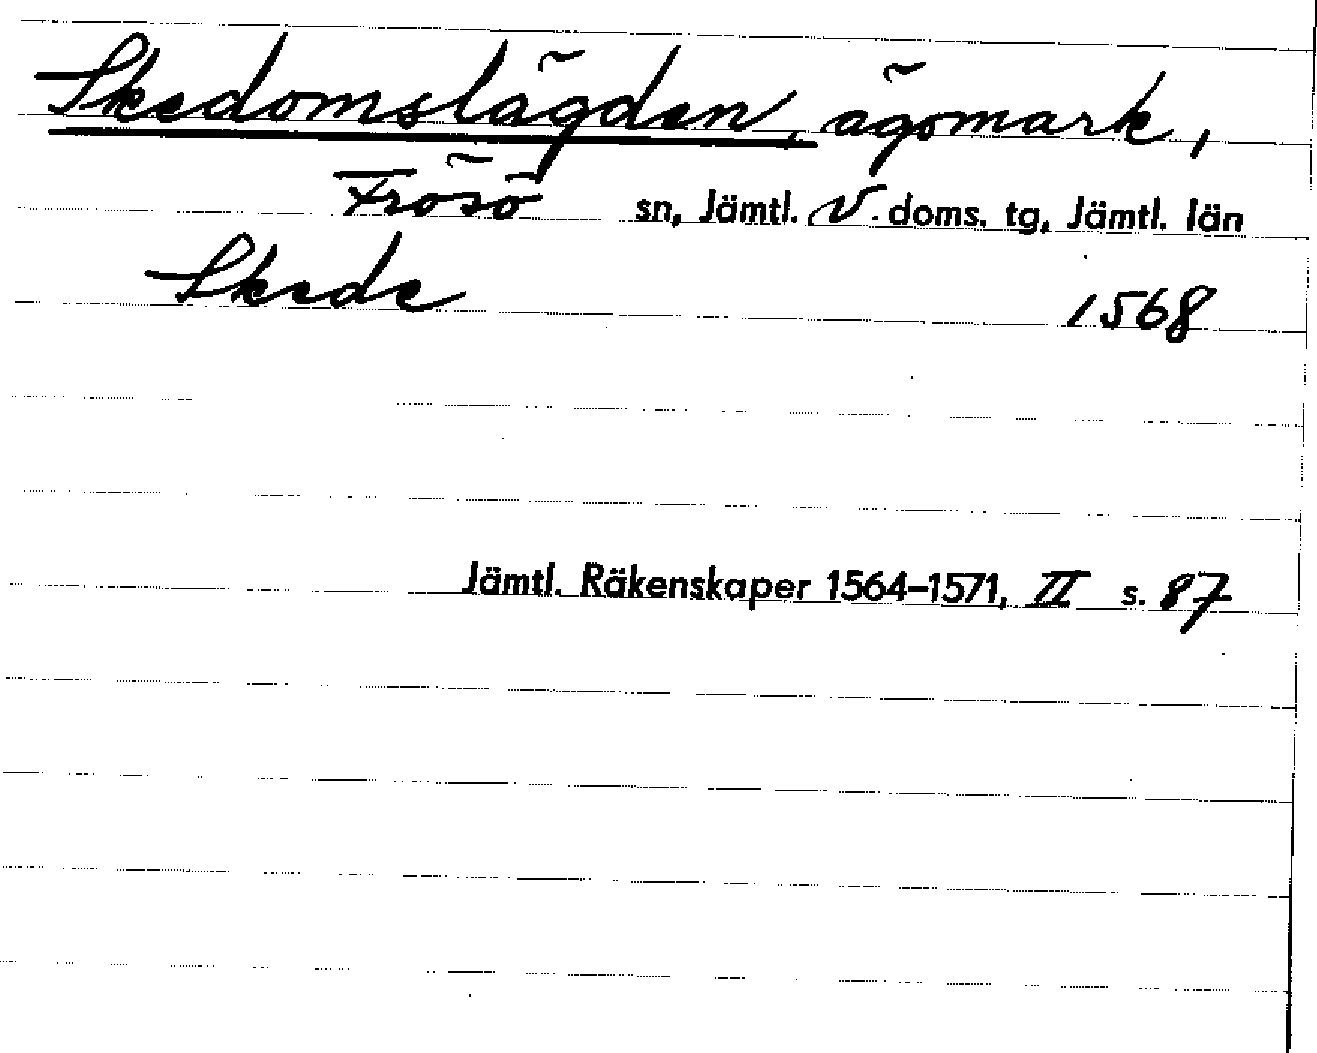 Skedomslägden, ägomark,
Frösö sn, Jämtl. V. doms. tg, Jämtl. län
Skede 1568
Jämtl. Räkenskaper 1564–1571, II s. 87